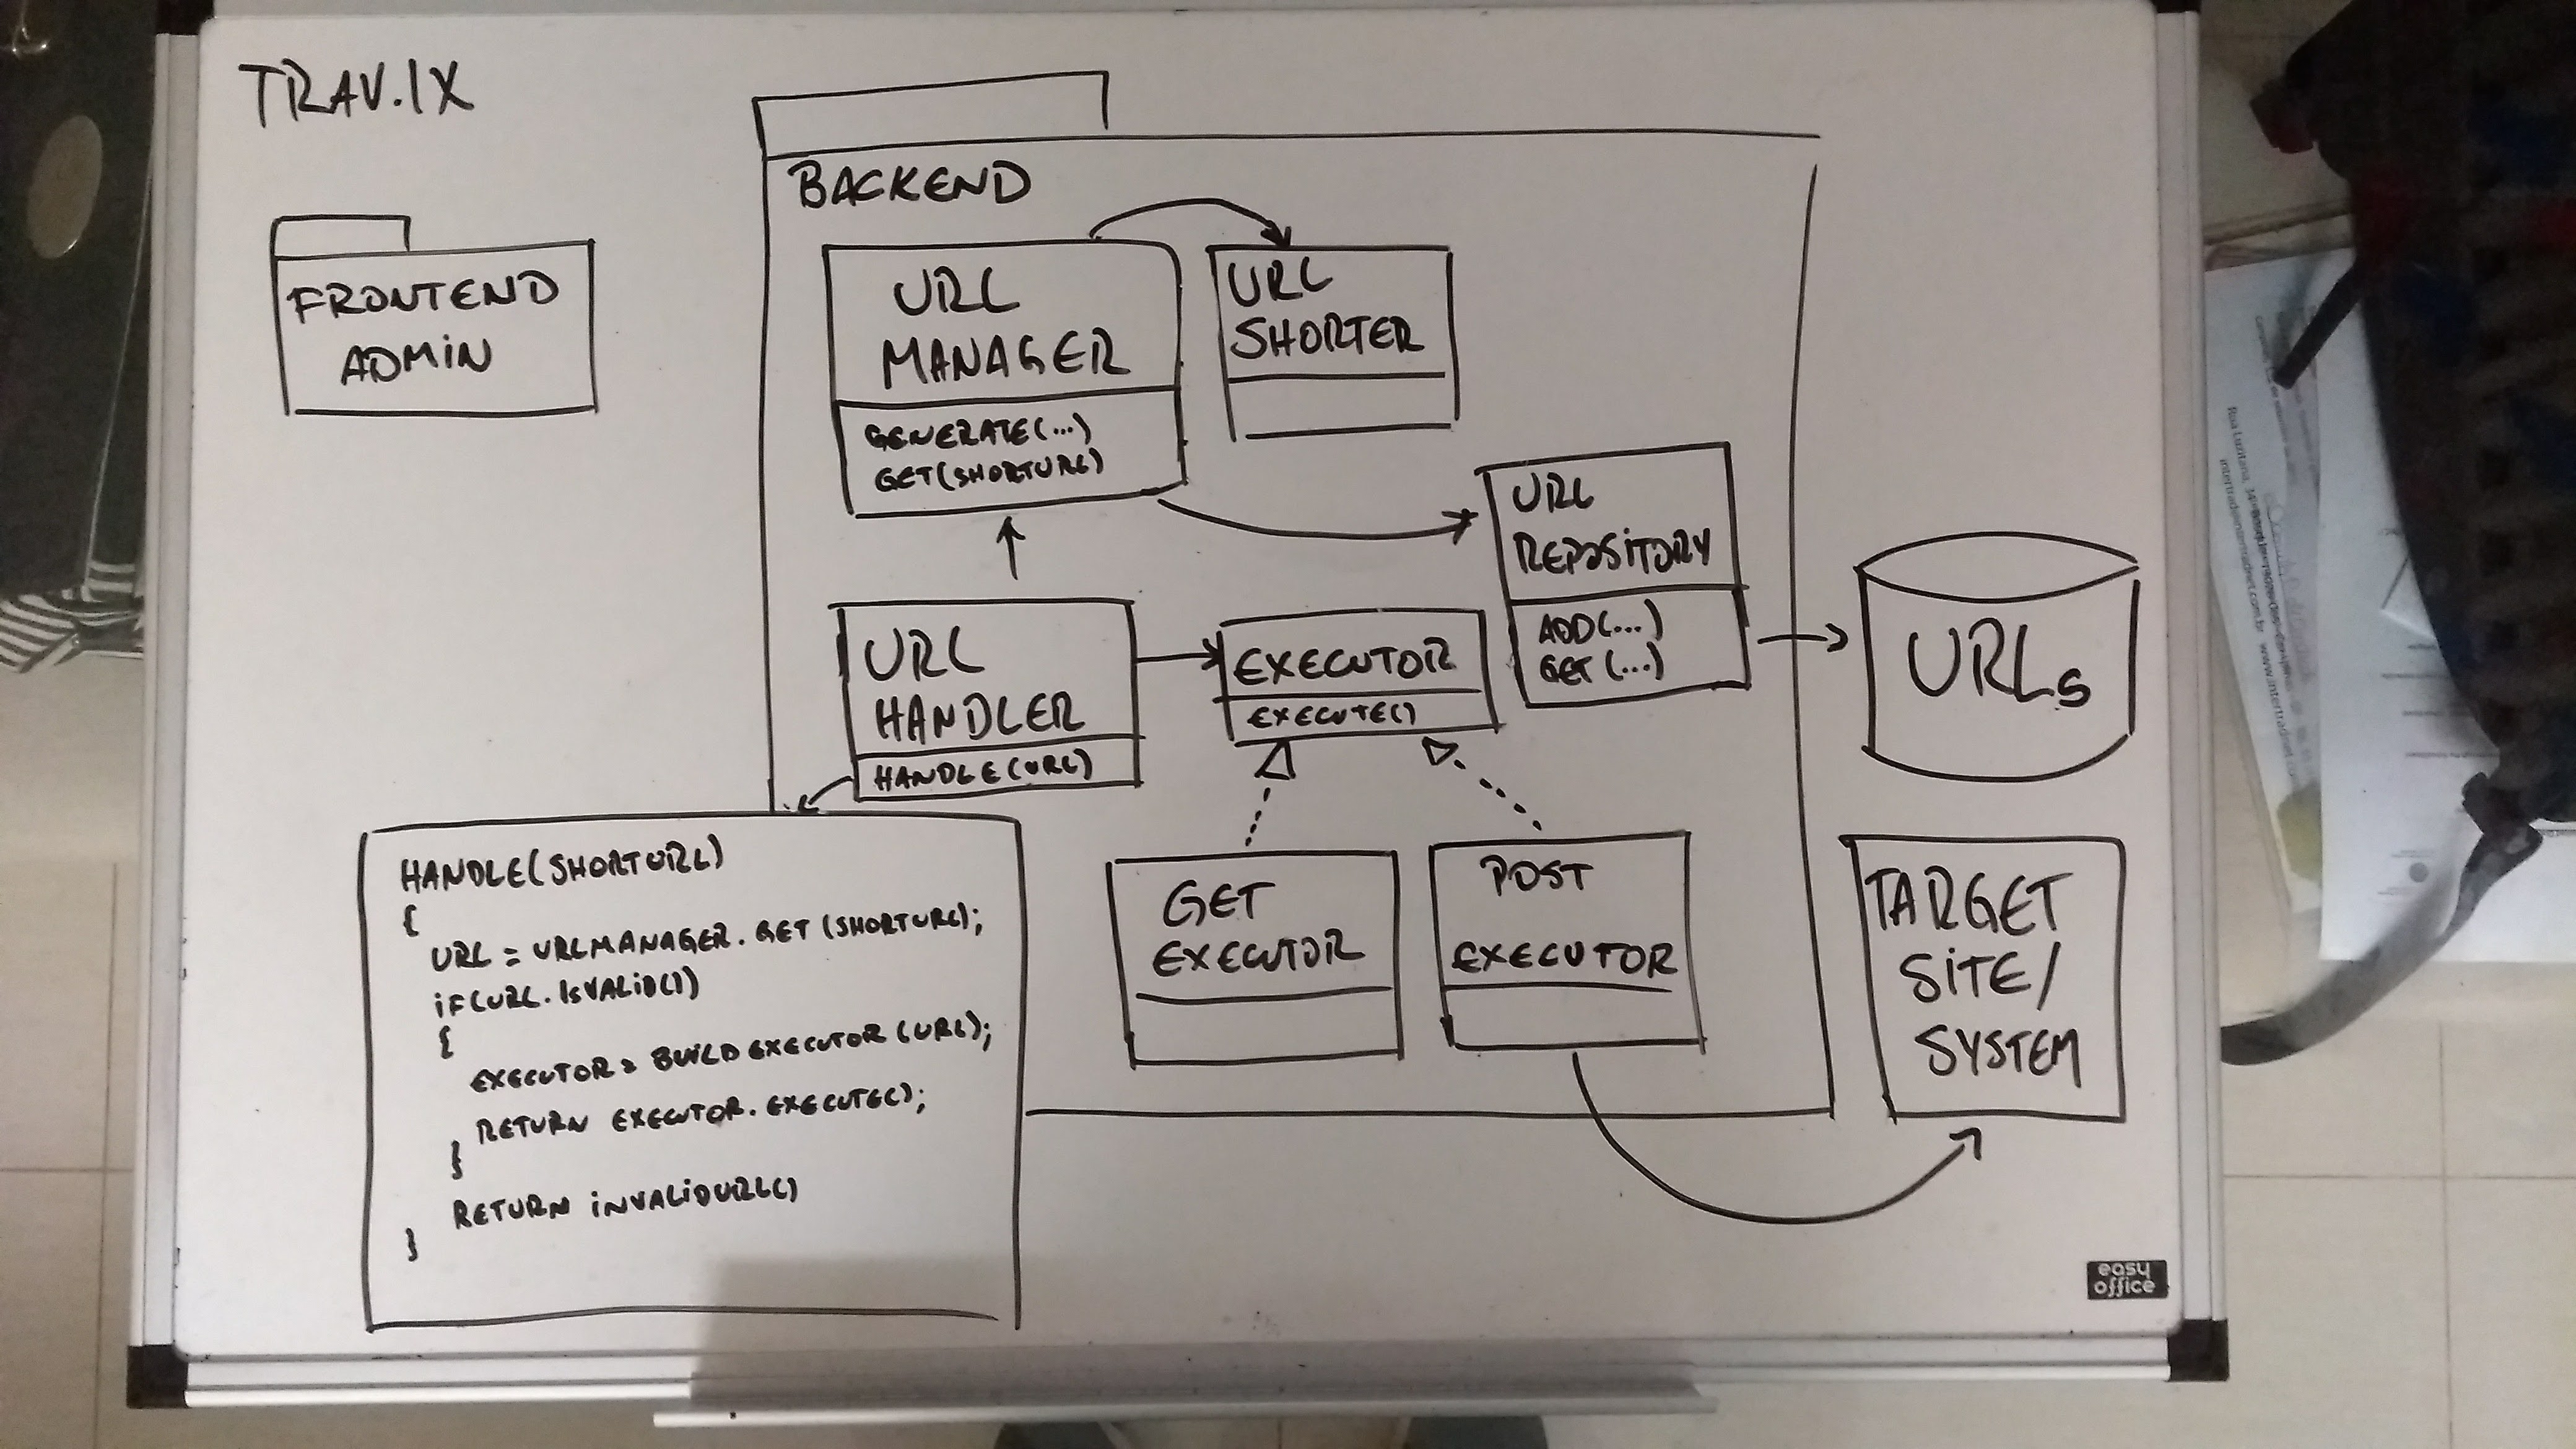 TRAV.IX
BACKEND
FRONTEND
ADMIN
URL
MANAGER
GENERATE(...)
GET(SHORTURL)
URL
SHORTER
URL
REPOSITORY
ADD(...)
GET(...)
URL
HANDLER
HANDLE(URL)
EXECUTOR
EXECUTE()
URLs
GET
EXECUTOR
POST
EXECUTOR
TARGET
SITE/
SYSTEM
HANDLE(SHORTURL)
{
URL = URLMANAGER.GET(SHORTURL);
if(URL.ISVALID())
{
EXECUTOR = BUILDEXECUTOR(URL);
RETURN EXECUTOR.EXECUTE();
}
RETURN INVALIDURL()
}
easy
office